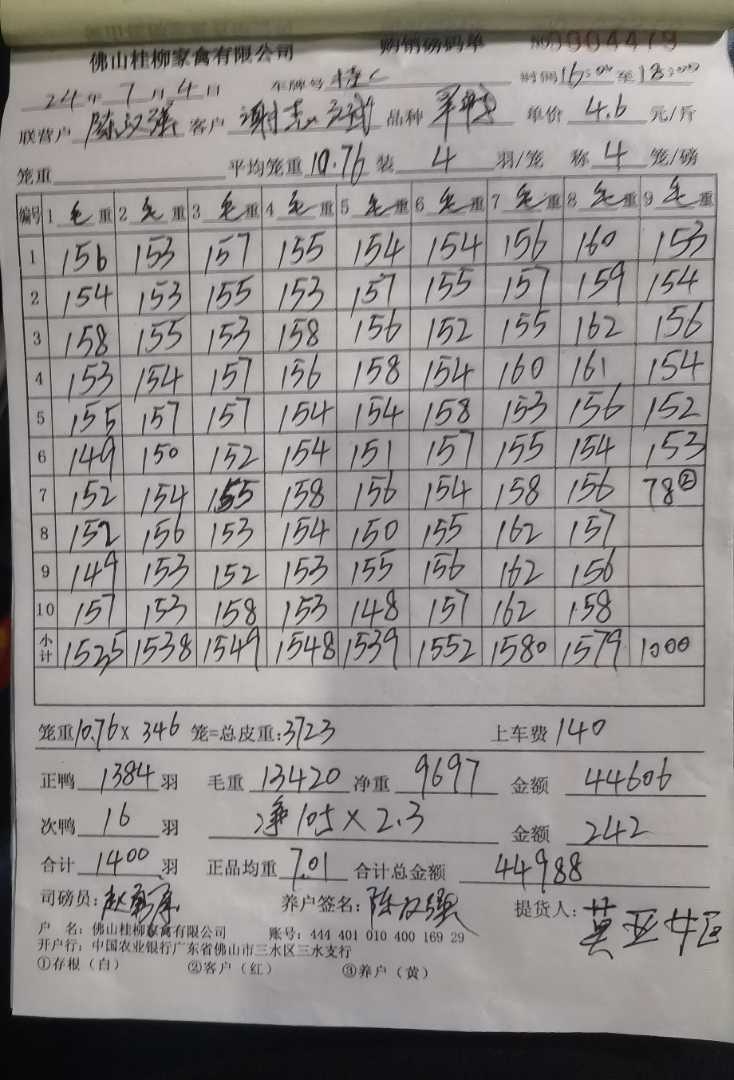 佛山桂柳家禽有限公司 购销磅码单 NO 0904479
24年 7月 4日 车牌号 时间 15:00 至 18:00
联营户 陈汉强 客户 品种 单价 4.6 元/斤
笼重 平均笼重 10.76 装 4 羽/笼 称 4 笼/磅
编号 1 毛重 2 毛重 3 毛重 4 毛重 5 毛重 6 毛重 7 毛重 8 毛重 9 毛重
1 156 153 157 155 154 154 156 160 153
2 154 153 155 153 157 155 157 159 154
3 158 155 153 158 156 152 155 162 156
4 153 154 157 156 158 154 160 161 154
5 155 157 157 154 154 158 153 156 152
6 149 150 152 154 151 157 155 154 153
7 152 154 155 158 156 154 158 156 78②
8 152 156 153 154 150 155 162 157
9 149 153 152 153 155 156 162 156
10 157 153 158 153 148 157 162 158
小计 1535 1538 1549 1548 1539 1552 1580 1579 1000
笼重 10.76 x 346 笼=总皮重: 3723 上车费 140
正鸭 1384 羽 毛重 13420 净重 9697 金额 44606
次鸭 16 羽 净 105 x 2.3 金额 242
合计 1400 羽 正品均重 7.01 合计总金额 44988
司磅员: 养户签名: 陈汉强 提货人:
户 名: 佛山桂柳家禽有限公司 账号: 444 401 010 400 169 29
开户行: 中国农业银行广东省佛山市三水区三水支行
①存根（白） ②客户（红） ③养户（黄）